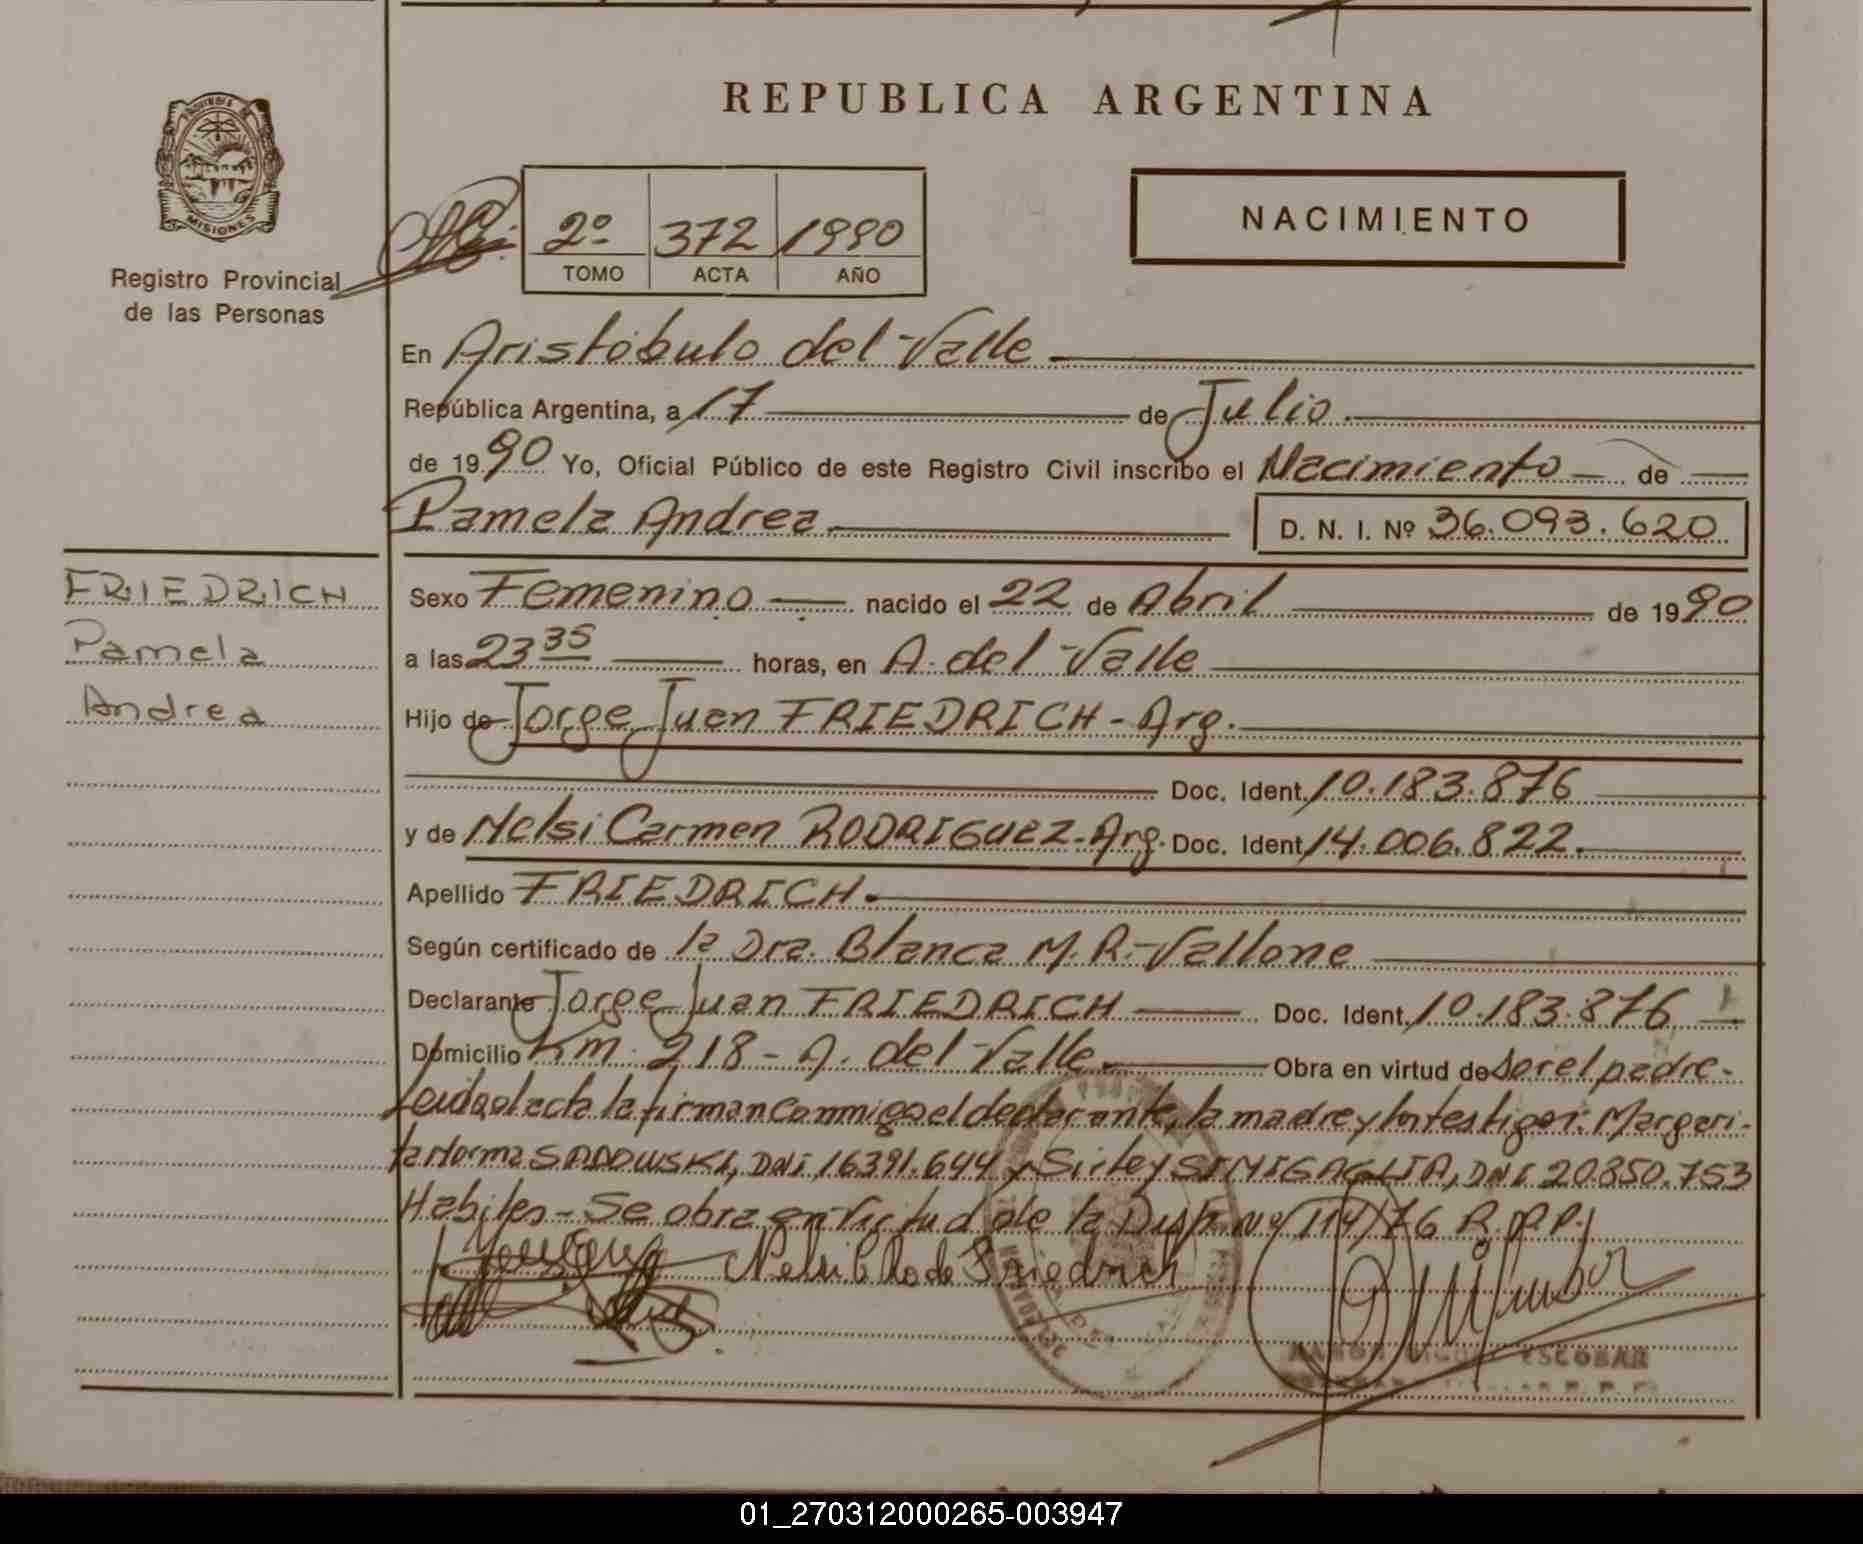 REPUBLICA ARGENTINA
PROVINCIA
MISIONES
Registro Provincial
de las Personas
2º 372 1990
TOMO ACTA AÑO
NACIMIENTO
En Aristóbulo del Valle
República Argentina, a 17 de Julio.
de 1990 Yo, Oficial Público de este Registro Civil inscribo el Nacimiento de
Pamela Andrea. D. N. I. Nº 36.093.620
FRIEDRICH
Pamela
Andrea
Sexo Femenino nacido el 22 de Abril de 1990
a las 23 35 horas, en A. del Valle
Hijo de Jorge Juan FRIEDRICH - Arg.
Doc. Ident. 10.183.876
y de Nelsi Carmen RODRIGUEZ - Arg. Doc. Ident. 14.006.822.
Apellido FRIEDRICH.
Según certificado de la Dra. Blanca M. R. Vallone
Declarante Jorge Juan FRIEDRICH Doc. Ident. 10.183.876
Domicilio Km. 218 - A. del Valle. Obra en virtud de ser el padre.-
Leida el acta la firman conmigo el declarante, la madre y los testigos: Margari-
ta Norma SADOWSKI, DNI 16391.644 y Sirley SIMIGAGLIA, DNI 20.850.753
Habiles - Se obra en virtud de la Disp. Nº 114/76 R.P.P.
Nelsi C R de Friedrich
ESCOBAR
01_270312000265-003947